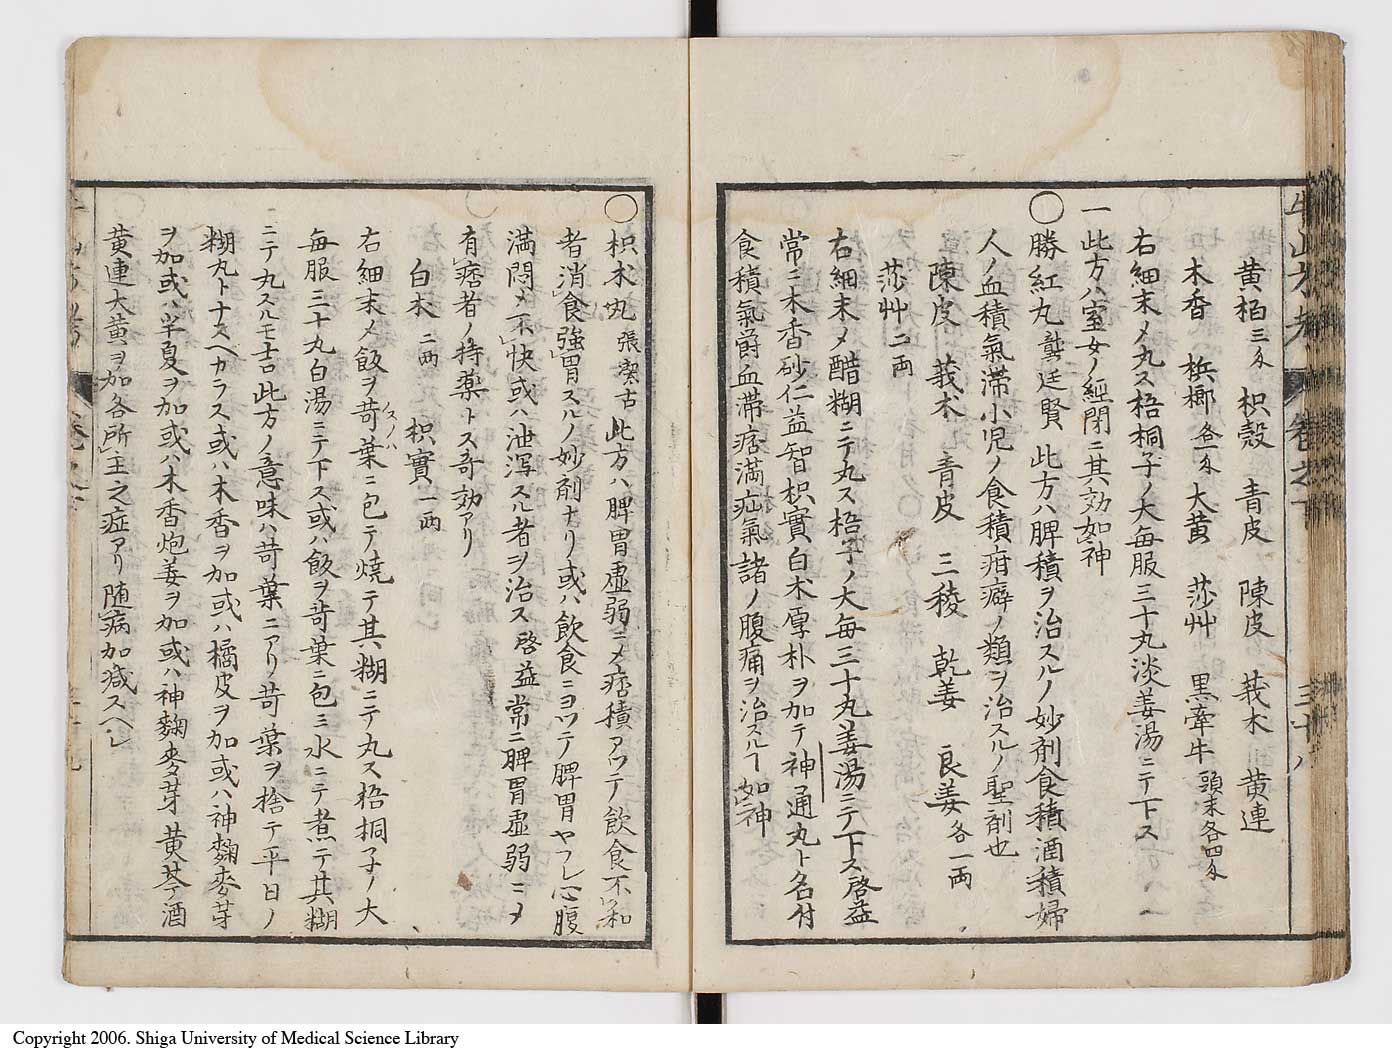 黄栢三匁 枳殻 青皮 陳皮 莪朮 黄連
木香 梹榔各一匁 大黄 莎艸 黒牽牛頭末各四匁
右細末メ丸ス梧桐子ノ大毎服三十丸淡姜湯ニテ下ス
一此方ハ室女ノ經閉ニ其効如神
〇勝紅丸龔廷賢 此方ハ脾積ヲ治スルノ妙剤食積酒積婦
人ノ血積氣滞小児ノ食積疳癖ノ類ヲ治スルノ聖剤也
陳皮 莪朮 青皮 三稜 乾姜 良姜各一两
莎艸二两
右細末メ醋糊ニテ丸ス梧子ノ大毎三十丸姜湯ニテ下ス啓益
常ニ木香砂仁益智枳實白朮厚朴ヲ加テ神通丸ト名付
食積氣欝血滞痞満疝氣諸ノ腹痛ヲ治スルヿ如神
〇枳朮丸張潔古 此方ハ脾胃虚弱ニメ痞積アツテ飲食不和
者消食強胃スルノ妙剤ナリ或ハ飲食ニヨツテ脾胃ヤフレ心腹
満悶メ不快或ハ泄瀉スル者ヲ治ス啓益常ニ脾胃虚弱ニメ
有痞者ノ持薬トス奇効アリ
白朮二两 枳實一两
右細末メ飯ヲ荷葉ニ包テ焼テ其糊ニテ丸ス梧桐子ノ大
毎服三十丸白湯ニテ下ス或ハ飯ヲ荷葉ニ包ミ水ニテ煮テ其糊
ニテ丸スルモ吉此方ノ意味ハ荷葉ニアリ荷葉ヲ捨テ平日ノ
糊丸トナスヘカラス或ハ木香ヲ加或ハ橘皮ヲ加或ハ神麹麥芽
ヲ加或ハ半夏ヲ加或ハ木香炮姜ヲ加或ハ神麹麥芽黄芩酒
黄連大黄ヲ加各所主之症アリ随病加减スヘレ
Copyright 2006. Shiga University of Medical Science Library